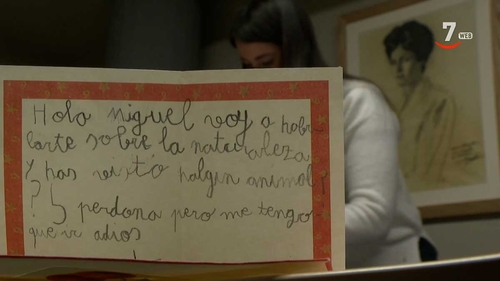 Hola miguel voy a habl
larte sobre la naturaleza
y has visto halgin animal?
? y perdona pero me tengo
que ir adios
7
WEB